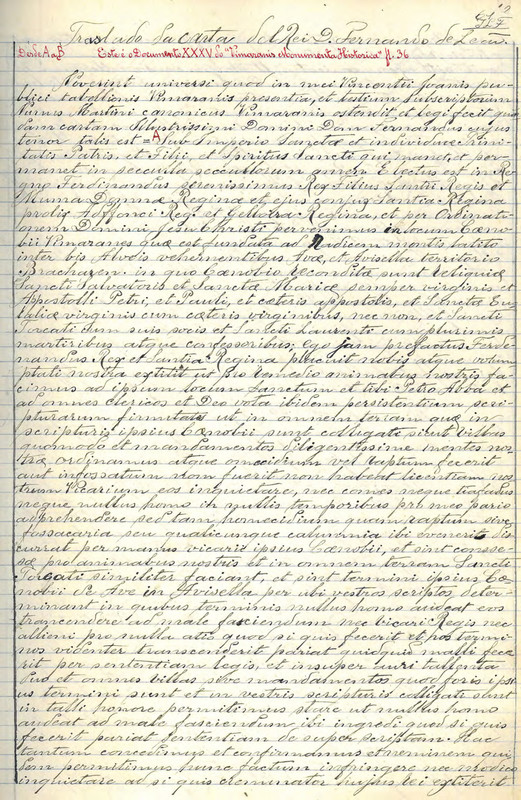 Traslado da carta del Rei D. Fernando de Leão.
Desde A a B Este é o Documento XXXV do "Vimaranis Monumenta Historica" fl. 36
Noverint universi quod in mei Vincentii Joanis pu-
blici tabellionis Vimaranis presentia, et testium subscriptorum
Martini canonicus Vimaranis ostendit et legi fecit quan-
dam cartam Illustrissimi Domini Dom Fernandus cujus
tenor talis est = A Sub Imperio Sanctæ et individuæ trini-
tatis Patris, et Filii, et Spiritus Sancti qui manet, et per-
manet in seculorum amen Electus est in Re-
gno Ferdinandus serenissimus Rex Filius Santii Regis et
Muma Donnæ Reginæ et ejus conjux Santia Regina
prolis Adffonci Reg. et Geloira Regina, et per Ordinati-
onem Domini Jesu Christi pervenimus in locum Cæno-
bii Vimaranes quæ est fundata ad Radicem montis latito
inter bis Alvois vehementibus Avæ, et Avisella territorio
Bracharen. in quo Cænobio reconditæ sunt reliquiæ
Sancti Salvatoris et Sanctæ Mariæ semper virginis et
Apostolli Petri, et Pauli, et cæteris appostolis, et Sanctæ Eu-
laliæ virginis cum cæteris virginibus, nec non, et Sancti
Torcati cum suis sociis et Sancti Laurenti cum plurimis
martiribus atque confessoribus; ego jam prefactus Ferde-
nandus Rex et Santia Regina placuit nobis atque volum-
ptati nostra extitit ut pro remedio animabus nostris fa-
cimus ad ipsum locum Sanctum et tibi Petro Abba et
ad omnes clericos et Deo vota ibidem persistentium scri-
pturarum firmitatis ut in omnem terram quæ in
scripturis ipsius Cænobii sunt colligati sicut villas
quomodo et mandamentos diligentissime mentes nos-
træ ordinamus atque omecidium vel raptum fecerit
aut infossatum nom fuerit non habeat licentiam nos-
trum Vicarium eos inquietare, nec comes neque
neque nullus homo in nullis temporibus pro meo pario
adprehendere sed tam homecidium quam raptum sive
fossacaria seu qualicunque calumnia ibi evenerit dis-
currat per manus vicarii ipsius Cænobii, et sint conses-
sæ pro animabus nostris et in omnem terram Sancti
Torcati similiter faciant, et sint termini ipsius Cæ-
nobii de Ave in Avisella per ubi vestros scriptos deter-
minant in quibus terminis nullus homo audeat eos
trancendere ad male fasciendum nec vicari Regis nec
allieni pro nulla actis quod si quis fecerit et pos termi-
nos videnter transcenderit pariat quidquid malli fece-
rit per sententiam legis, et insuper auri tallenta
duo et omnes villas sive mandamentos quod foris ipsi-
us termini sunt et in vestris scripturis colligati sunt
in talli honore permitimus stare ut nullus homo
audeat ad male fasciendum ibi ingredi quod si quis
fecerit pariat sententiam de super scriptam. Hac
tantum concedimus et confirmamus et neminem qui-
dem permitimus hunc factum infringere nec modice
inquietare at si quis creminator hujus rei extiterit